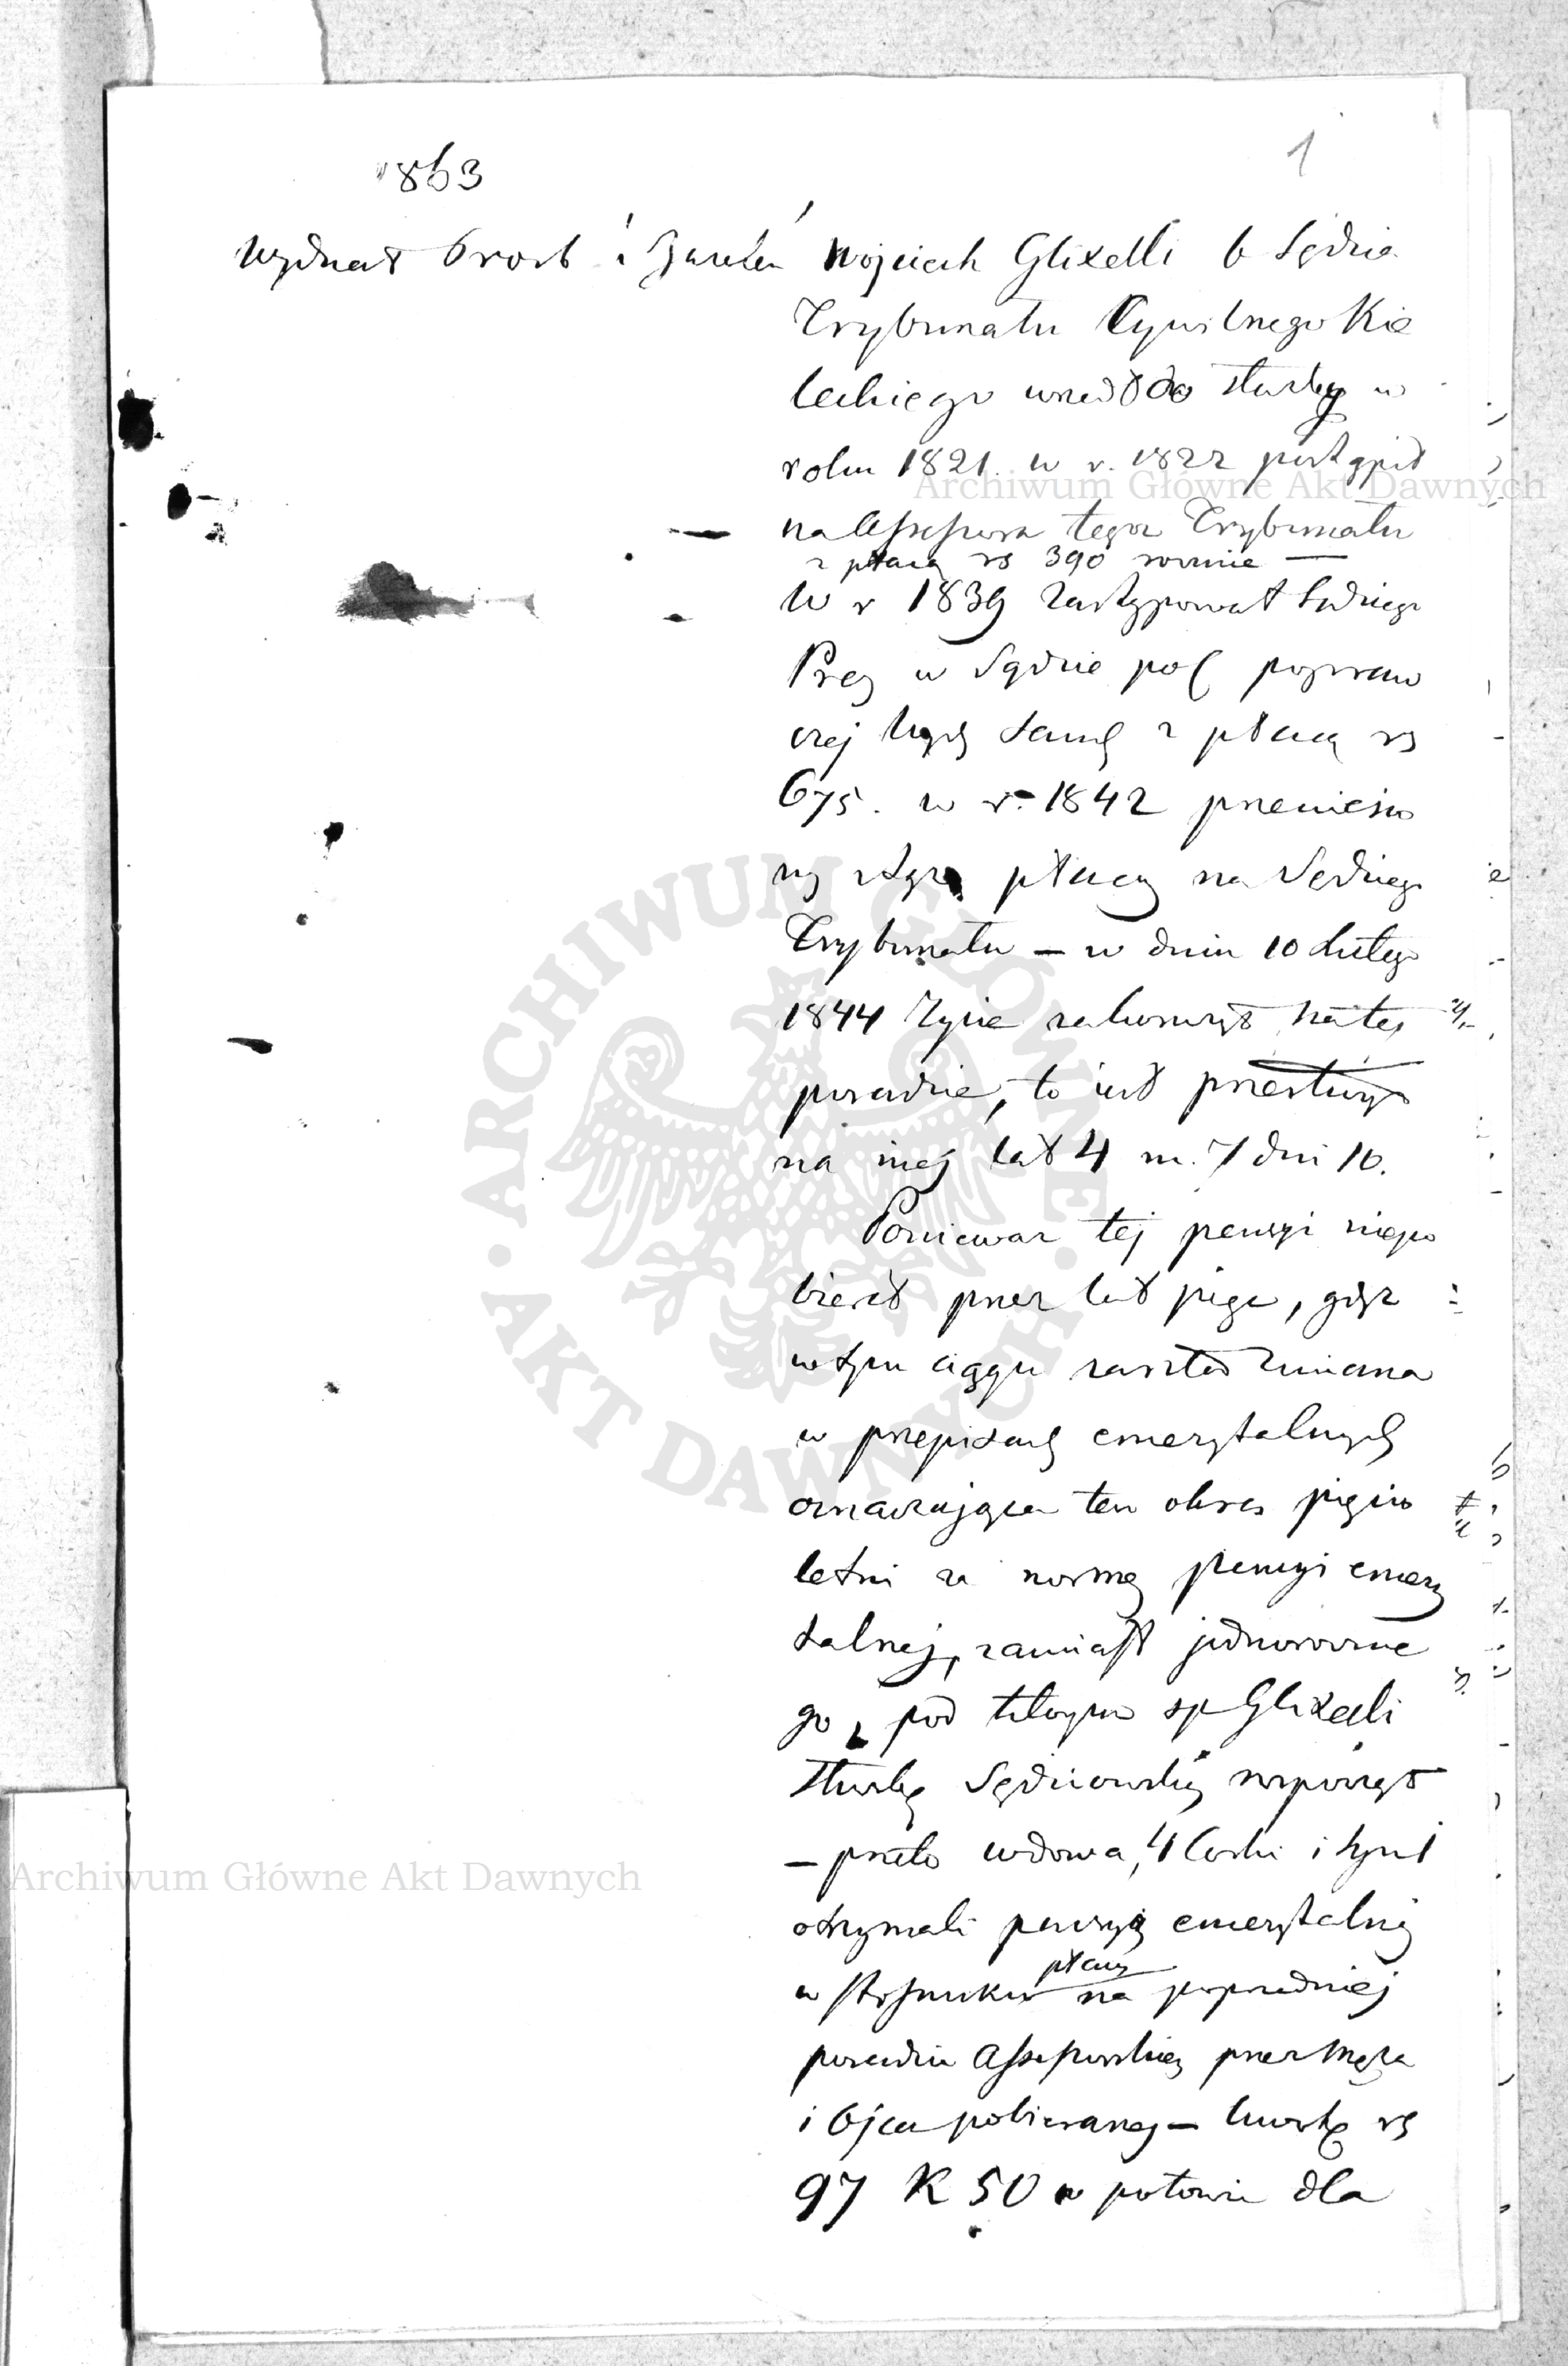 1863
1
Wydział Proźb i Zażaleń
Wojciech Glixelli b Sędzia
Trybunału Cywilnego Kie
leckiego wszedł do służby w
roku 1821. w r. 1822 postąpił
na Assessora tegoż Trybunału
z płacą rs 390 rocznie —
W r 1839 zastępował Sędziego
Prez w Sądzie pol popraw
czej tamę z płacą rs
675. w r. 1842 przeniesio
ny z tąż płacą na Sędziego
Trybunału — w dniu 10 Lutego
1844 życie zakończył na tej
posadzie, to iest przesłużył
na niej lat 4 m. 7 dni 10.
Ponieważ tej pensyi niepo
bierał przez lat pięć, gdyż
w tym ciągu zaszła zmiana
w przepisach emerytalnych
oznaczająca ten okres pięcio
letni za normę pensyi emery
talnej, zamiast jednoroczne
go, pod którym sp Glixelli
służbę Sędziowską rozpoczął
— przeto wdowa, 4 Corki i syn 1
otrzymali pensyą emerytalną
w stosunku płacy na poprzedniej
posadzie Assessorskiej przez Męża
i Ojca pobieranej — kwotę rs
97 K 50 w połowie dla
Archiwum Główne Akt Dawnych
ARCHIWUM GŁÓWNE AKT DAWNYCH
Archiwum Główne Akt Dawnych